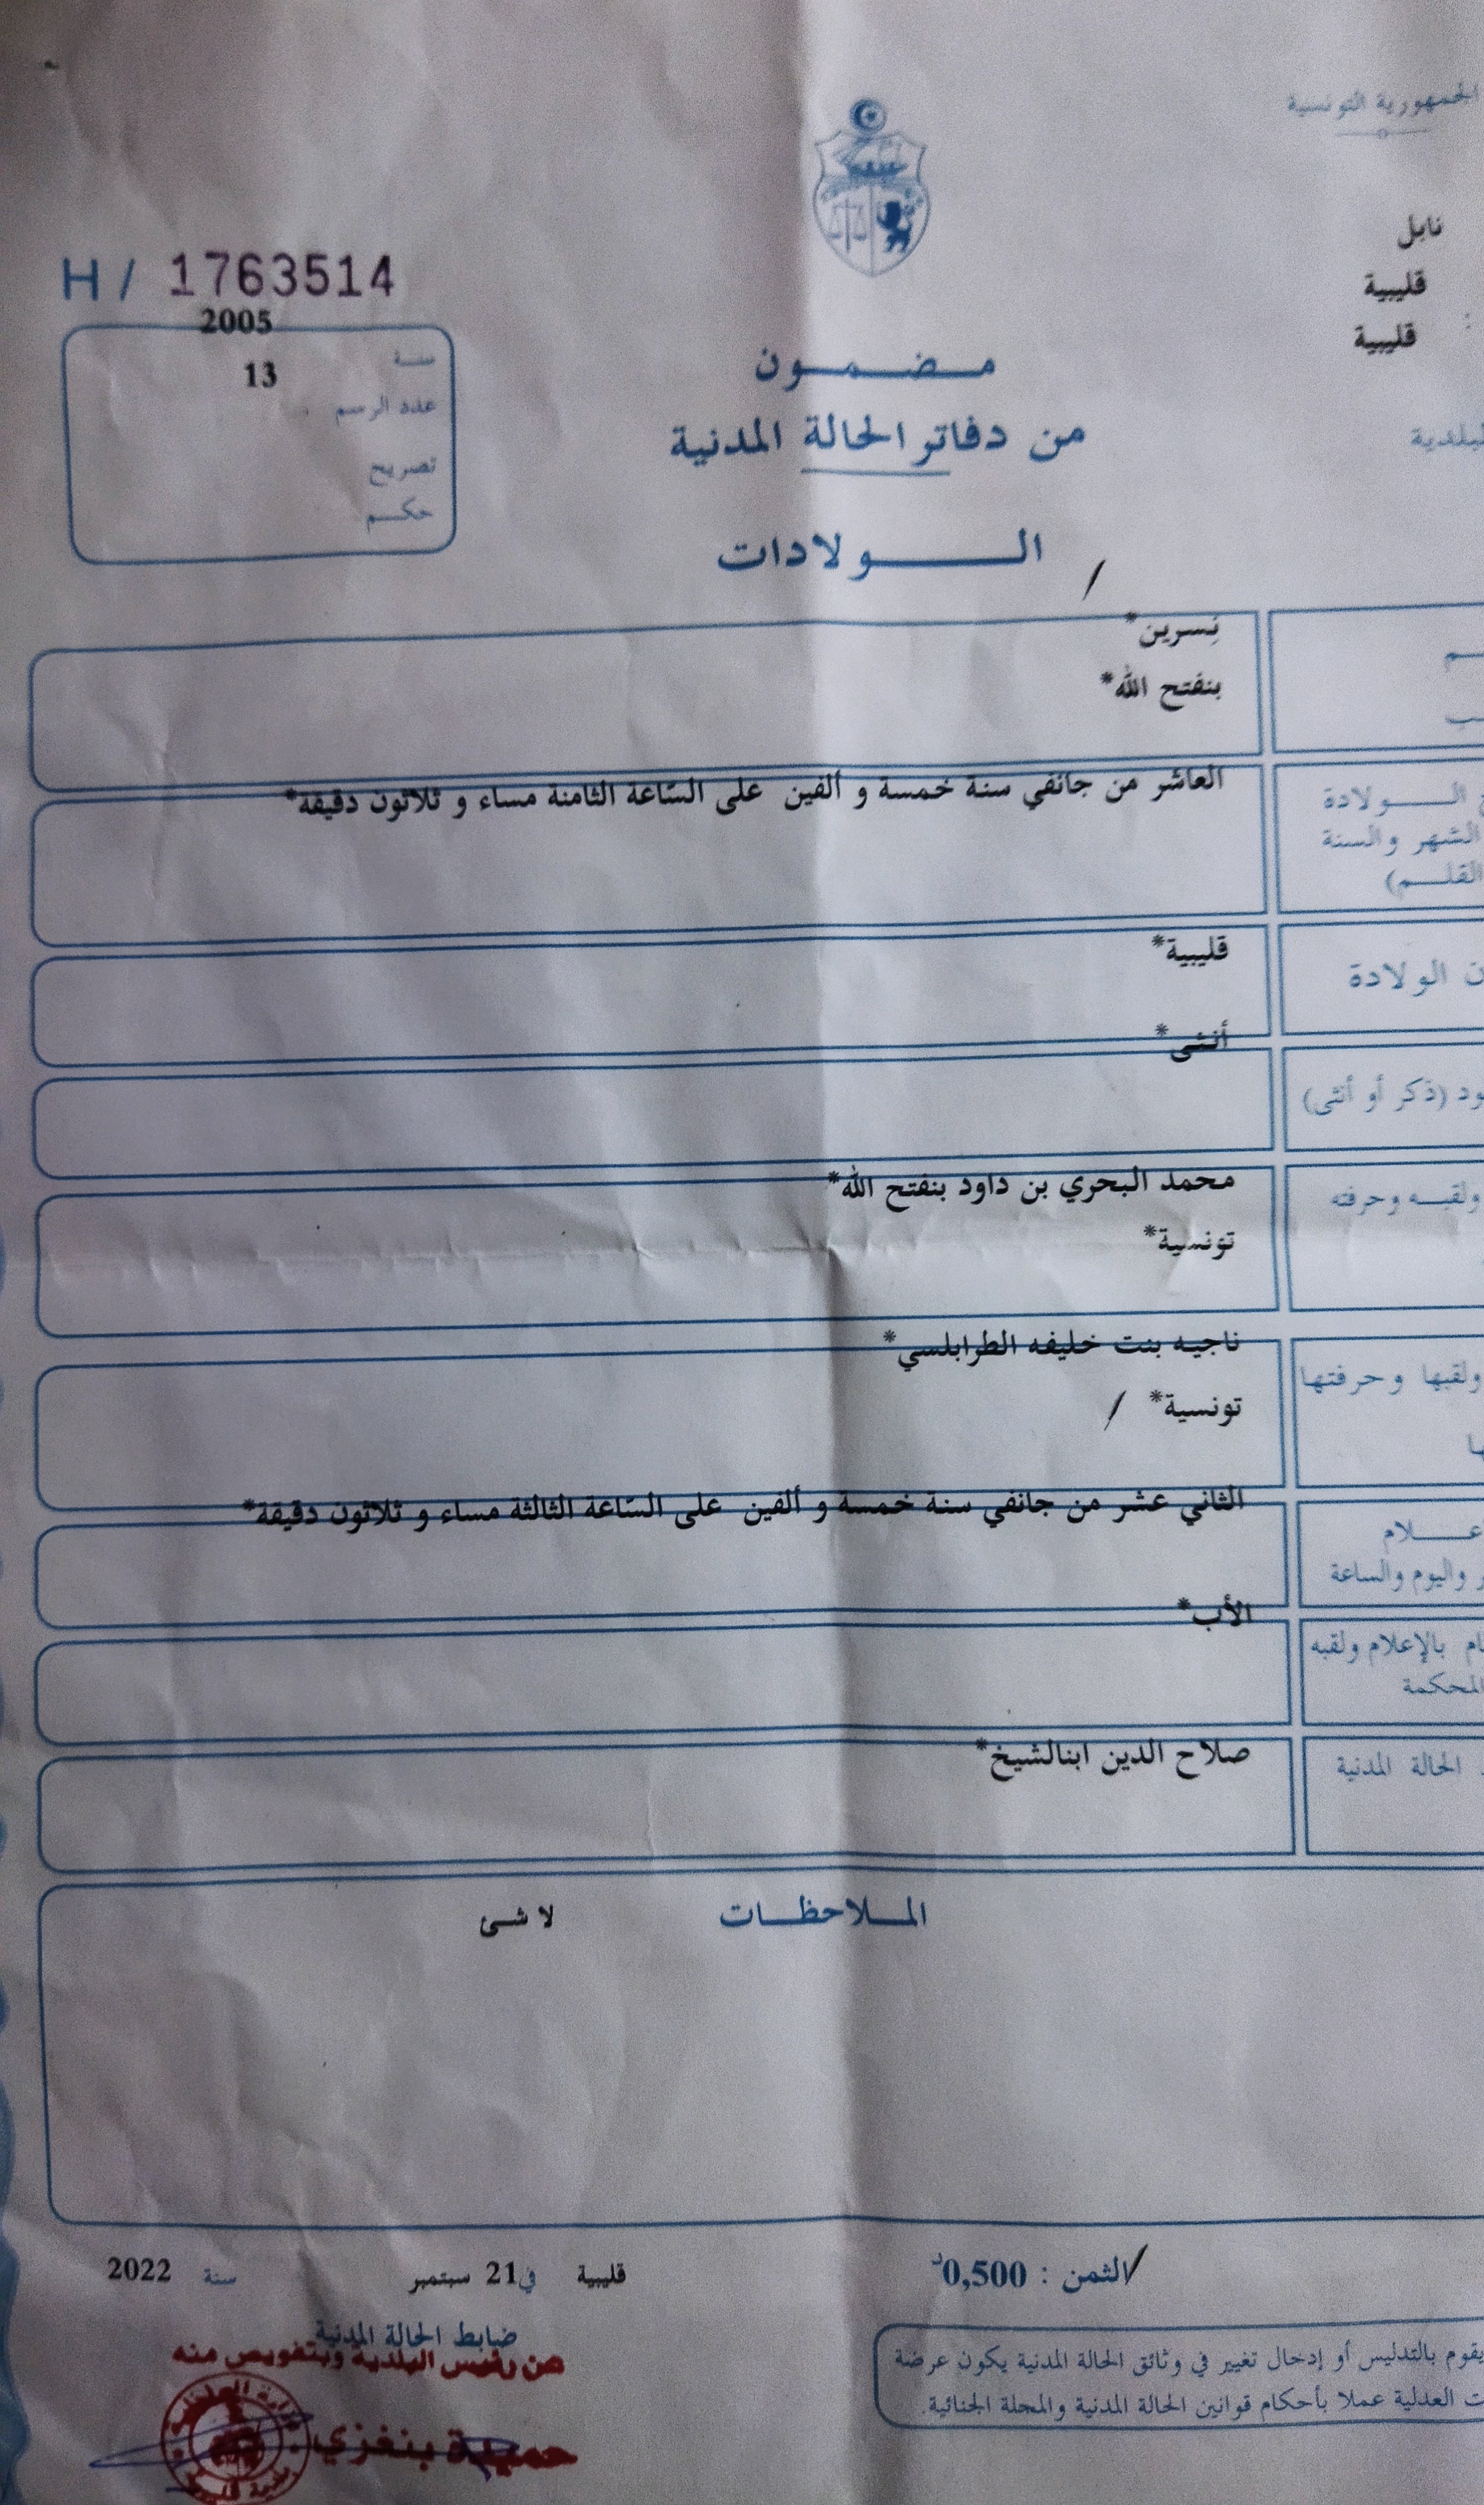 الجمهورية التونسية
نابل
قليبية
قليبية :
H / 1763514
2005
سنة
13
عدد الرسم
تصريح
حكم
مضمون
من دفاتر الحالة المدنية
الولادات
نِسرين*
بنفتح الله*
العاشر من جانفي سنة خمسة و ألفين على السّاعة الثامنة مساء و ثلاثون دقيقة*
الولادة
الشهر والسنة
القلم)
قليبية*
الولادة
أنثى*
(ذكر أو أنثى)
محمد البحري بن داود بنفتح الله*
ولقبه وحرفته
تونسية*
ناجيه بنت خليفه الطرابلسي*
ولقبها وحرفتها
تونسية* /
الثاني عشر من جانفي سنة خمسة و ألفين على السّاعة الثالثة مساء و ثلاثون دقيقة*
واليوم والساعة
الأب*
بالإعلام ولقبه
المحكمة
صلاح الدين ابنالشيخ*
الحالة المدنية
الملاحظات لا شئ
الثمن : 0,500د
قليبية في 21 سبتمبر سنة 2022
ضابط الحالة المدنية
عن رئيس البلدية وبتفويض منه
حميدة بنغزي
يقوم بالتدليس أو إدخال تغيير في وثائق الحالة المدنية يكون عرضة
العدلية عملا بأحكام قوانين الحالة المدنية والمجلة الجنائية.